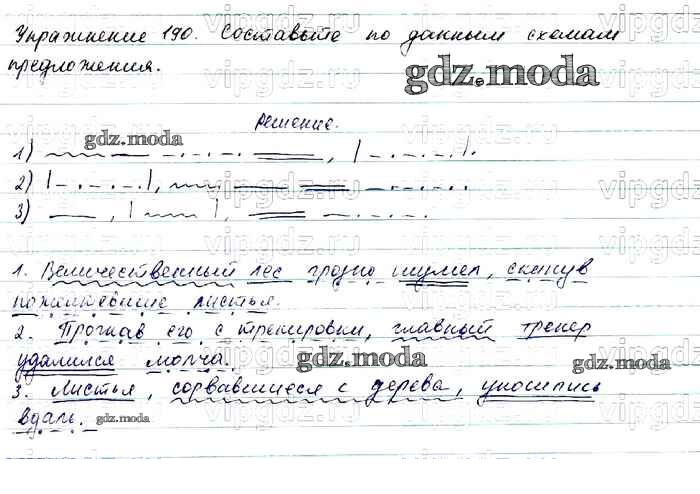 Упражнение 190. Составьте по данным схемам
предложения.
gdz.moda
Решение.
gdz.moda
1)
2)
3)
1. Величественный лес грозно шумел, скинув
пожелтевшие листья.
2. Прогнав его с тренировки, главный тренер
удалился молча.
gdz.moda
gdz.moda
3. Листья, сорвавшиеся с дерева, уносились
вдаль.
gdz.moda
vipgdz.ru